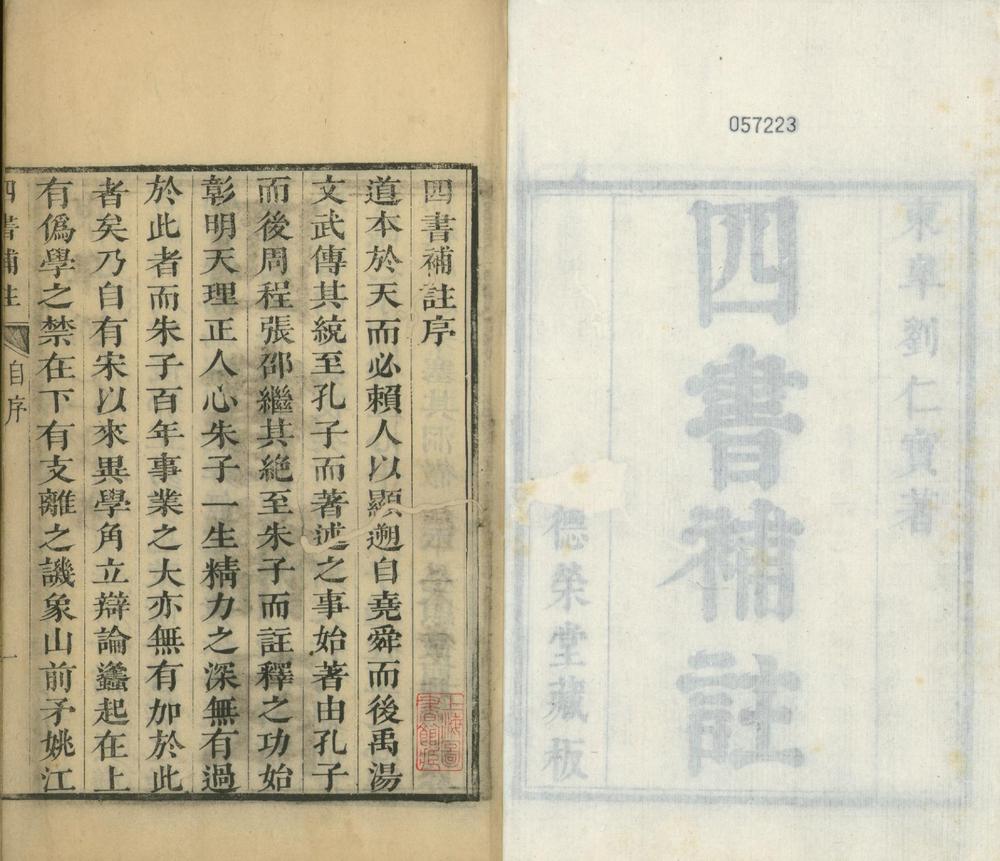 057223
東皐劉仁寶著
四書補註
德榮堂藏板
四書補註序
道本於天而必賴人以顯遡自堯舜而後禹湯
文武傳其統至孔子而著述之事始著由孔子
而後周程張邵繼其絶至朱子而註釋之功始
彰明天理正人心朱子一生精力之深無有過
於此者而朱子百年事業之大亦無有加於此
者矣乃自有宋以來異學角立辯論蠭起在上
有僞學之禁在下有支離之譏象山前矛姚江
四書補註 自序 一
上海圖書館藏